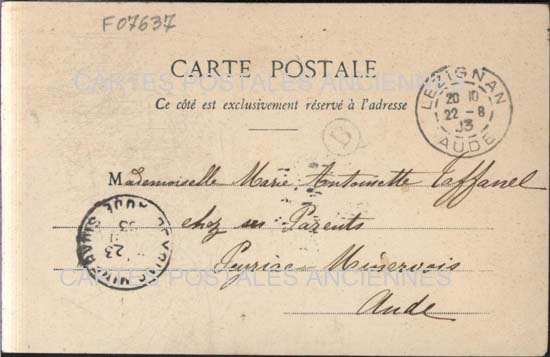 F07637
CARTE POSTALE
CARTES POSTALES ANCIENNES
Ce côté est exclusivement réservé à l'adresse
LEZIGNAN
20 10
22 - 8
03
AUDE
B
Mademoiselle Marie Antoinette Taffanel
chez ses Parents
Peyriac-Minervois
Aude
23
AUDE
CARTES POSTALES ANCIENNES